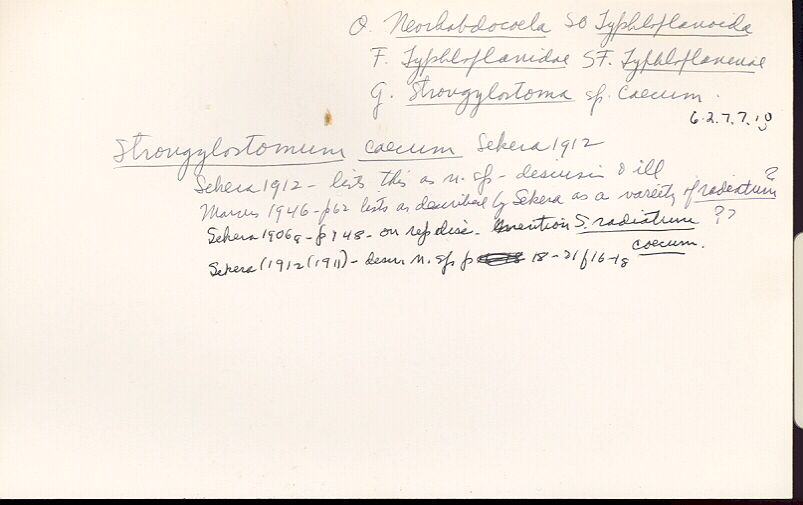 O. Neorhabdocoela SO Typhloplanoida
F. Typhloplanidae SF. Typhloplaneinae
G. Strongylostoma sp. Caecum.
6.2.7.7.10
Strongylostomum caecum Sekera 1912
Sekera 1912 - lists this as n. sp - descrisin & ill
Marcus 1946 - p62 lists as described by Sekera as a variety of radiatum ?
Sekera 1906a - p 148 - on rep disc. mention S. radiatum ??
caecum.
Sekera (1912 (1911) - descr. n. sp p 18-21 f 16-18